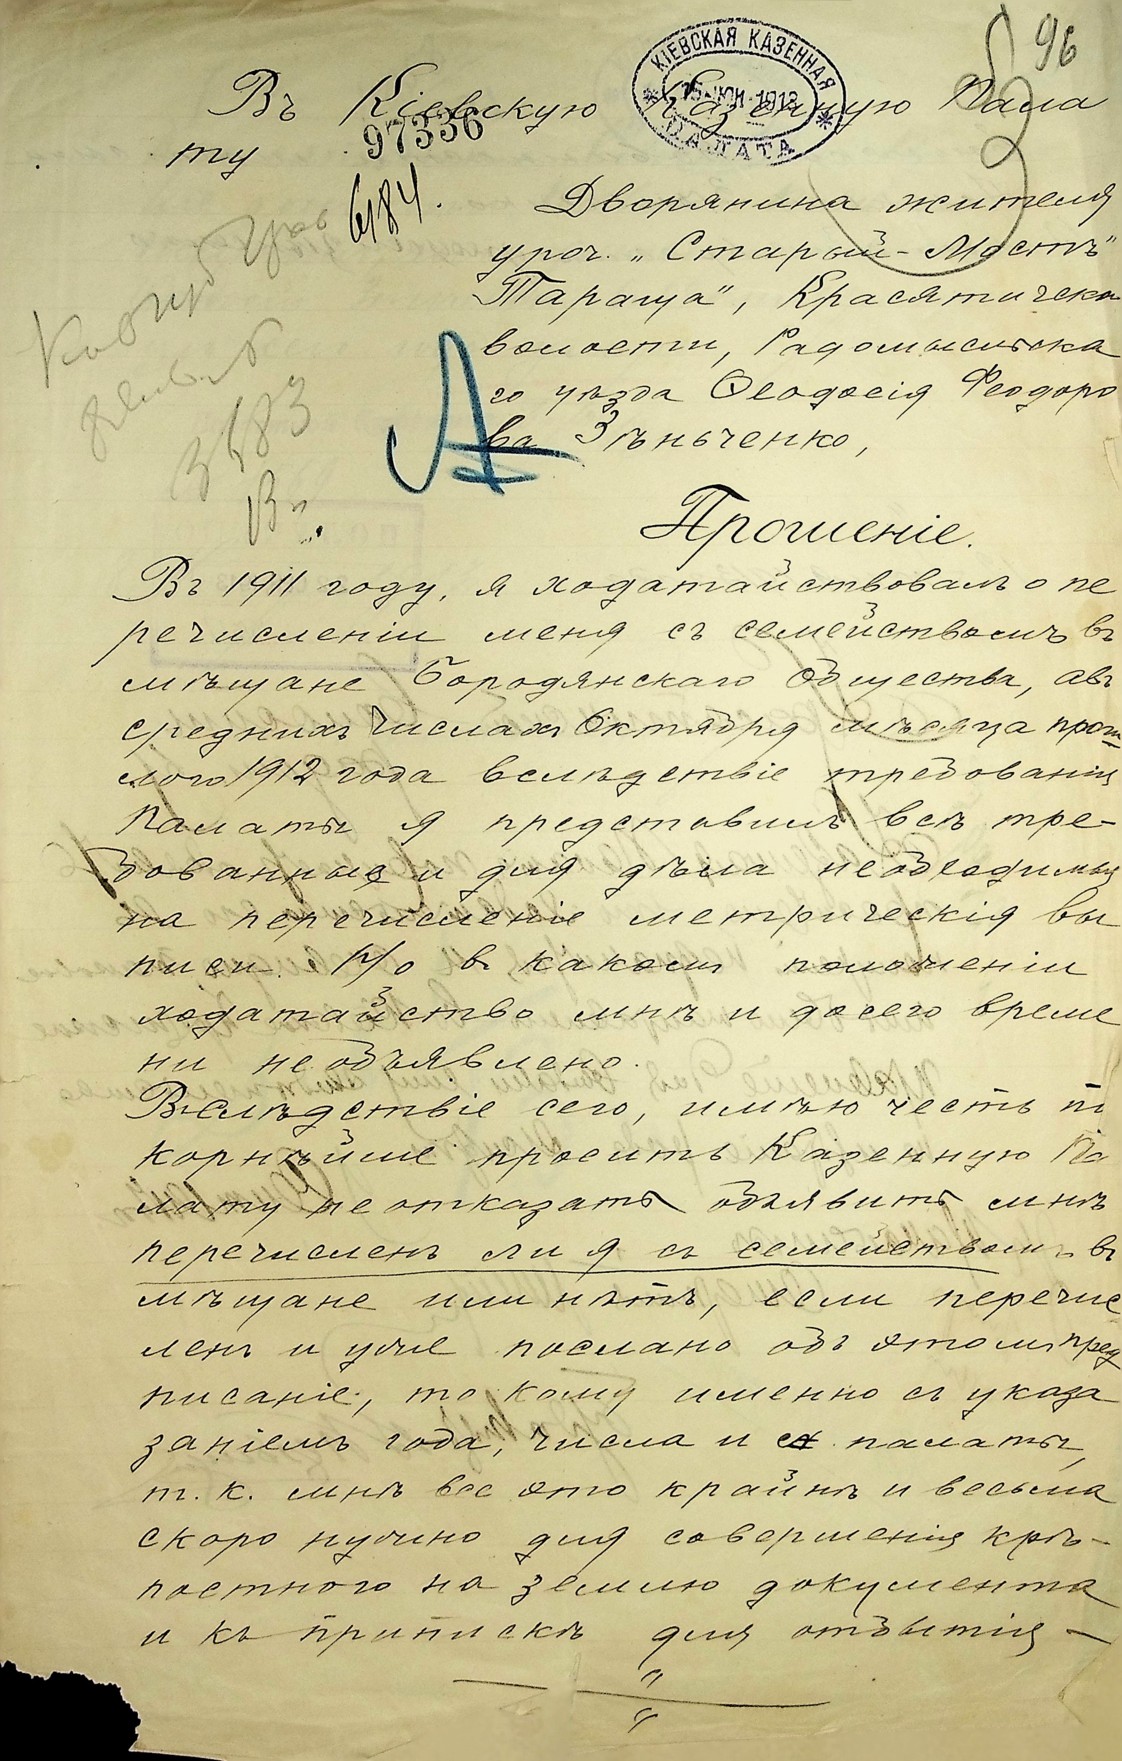 96
КІЕВСКАЯ КАЗЕННАЯ
ПАЛАТА
1913
Въ Кіевскую Казенную Пала
ту
97336
6184.
Дворянина жителя
уроч. „Старый-Мостъ"
Тараща", Красятическ
волости, Радомысльска
го уѣзда Ѳеодосія Феодоро
ва Зѣньченко,
3683
Прошеніе.
Въ 1911 году, я ходатайствовалъ о пе
речисленіи меня съ семействомъ въ
мѣщане Бородянскаго Общества, авъ
среднихъ числахъ Октября мѣсяца прош
лого 1912 года вслѣдствіе требованія
Палаты я представилъ всѣ тре-
бованныя и для дѣла необходимыя
на перечисленіе метрическія вы
писи. Но въ какомъ положеніи
ходатайство мнѣ и досего време
ни необъявлено.
Вслѣдствіе сего, имѣю честь по
корнѣйше просить Казенную Па
лату не отказать объявить мнѣ
перечисленъ ли я съ семействомъ въ
мѣщане или нѣтъ, если перечис
ленъ и уже послано объ этомъ пред
писаніе, то кому именно съ указа
заніемъ года, числа и палаты,
т. к. мнѣ все это крайнѣ и весьма
скоро нужно для совершенія крѣ-
постного на землю документа
и къ припискѣ для отбытія —